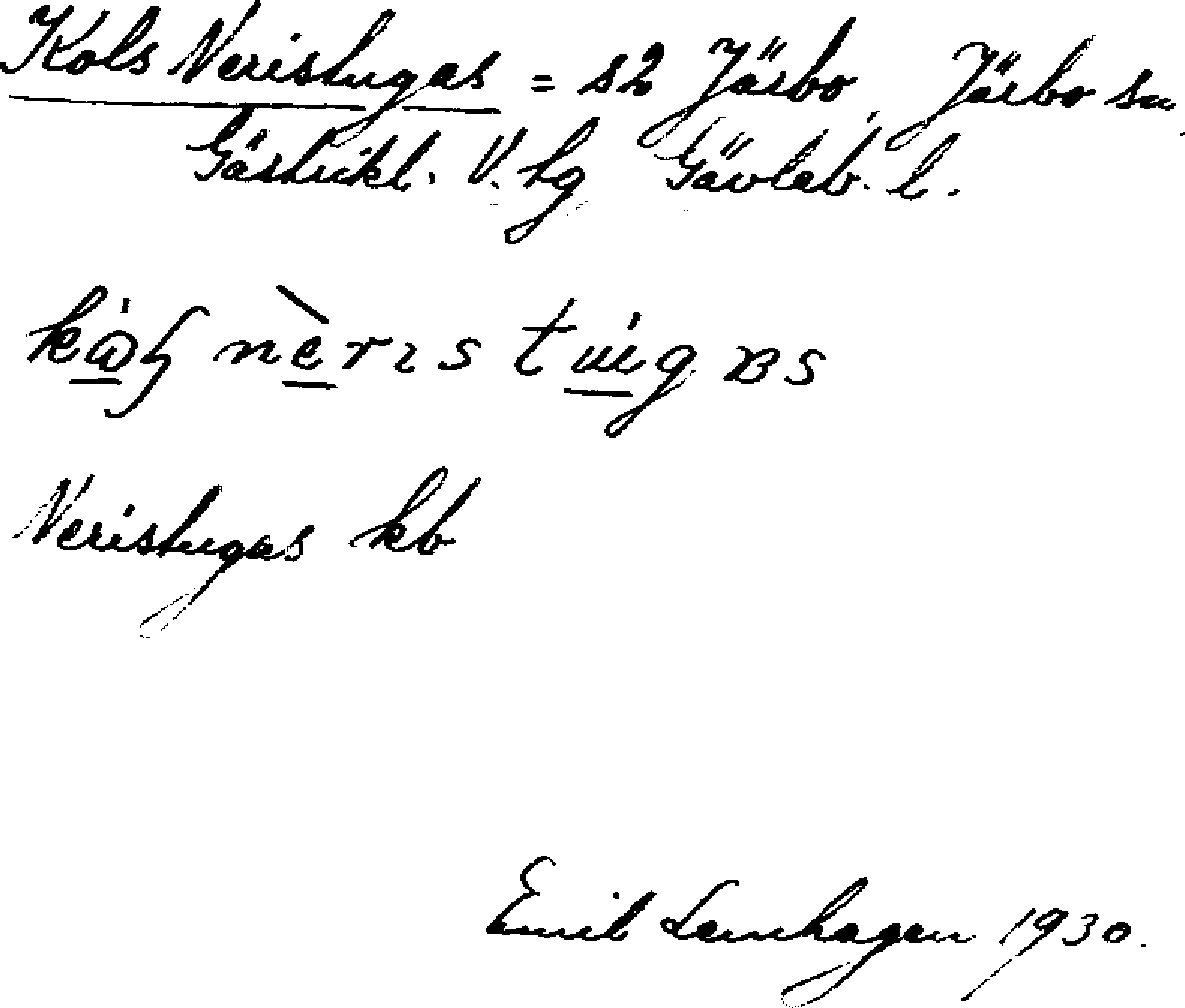 Kols Neristugas = s2 Järbo, Järbo sn,
Gästrikl. V. tg Gävleb. l.
nèrɪs
Neristugas kb
Emil Lenhagen 1930.